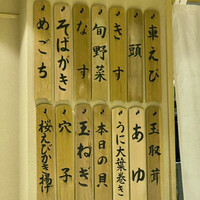 車えび
頭
きす
旬野菜
なす
そばがき
めごち
玉取茸
あゆ
うに大葉巻き
本日の貝
玉ねぎ
穴子
桜えびかき揚げ